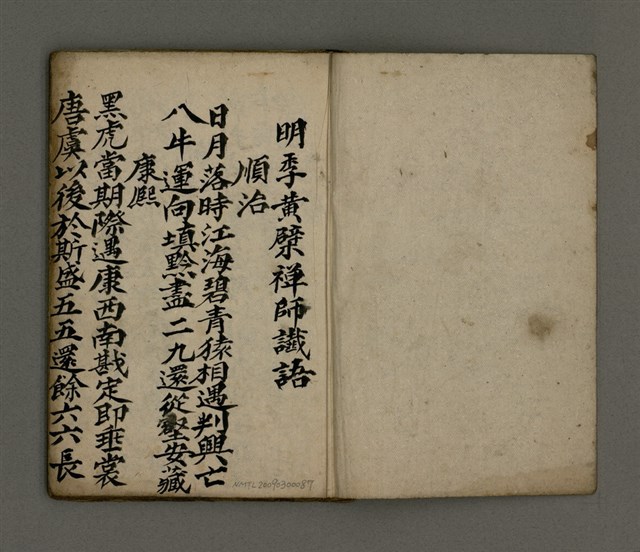 明季黃檗禪師讖語
順治
日月落時江海碧青猿相遇判興亡
八牛運向填黔盡二九還從壑安藏
康熙
黑虎當期際遇康西南戡定即垂裳
唐虞以後於斯盛五五還餘六六長
NMTL 20090300087